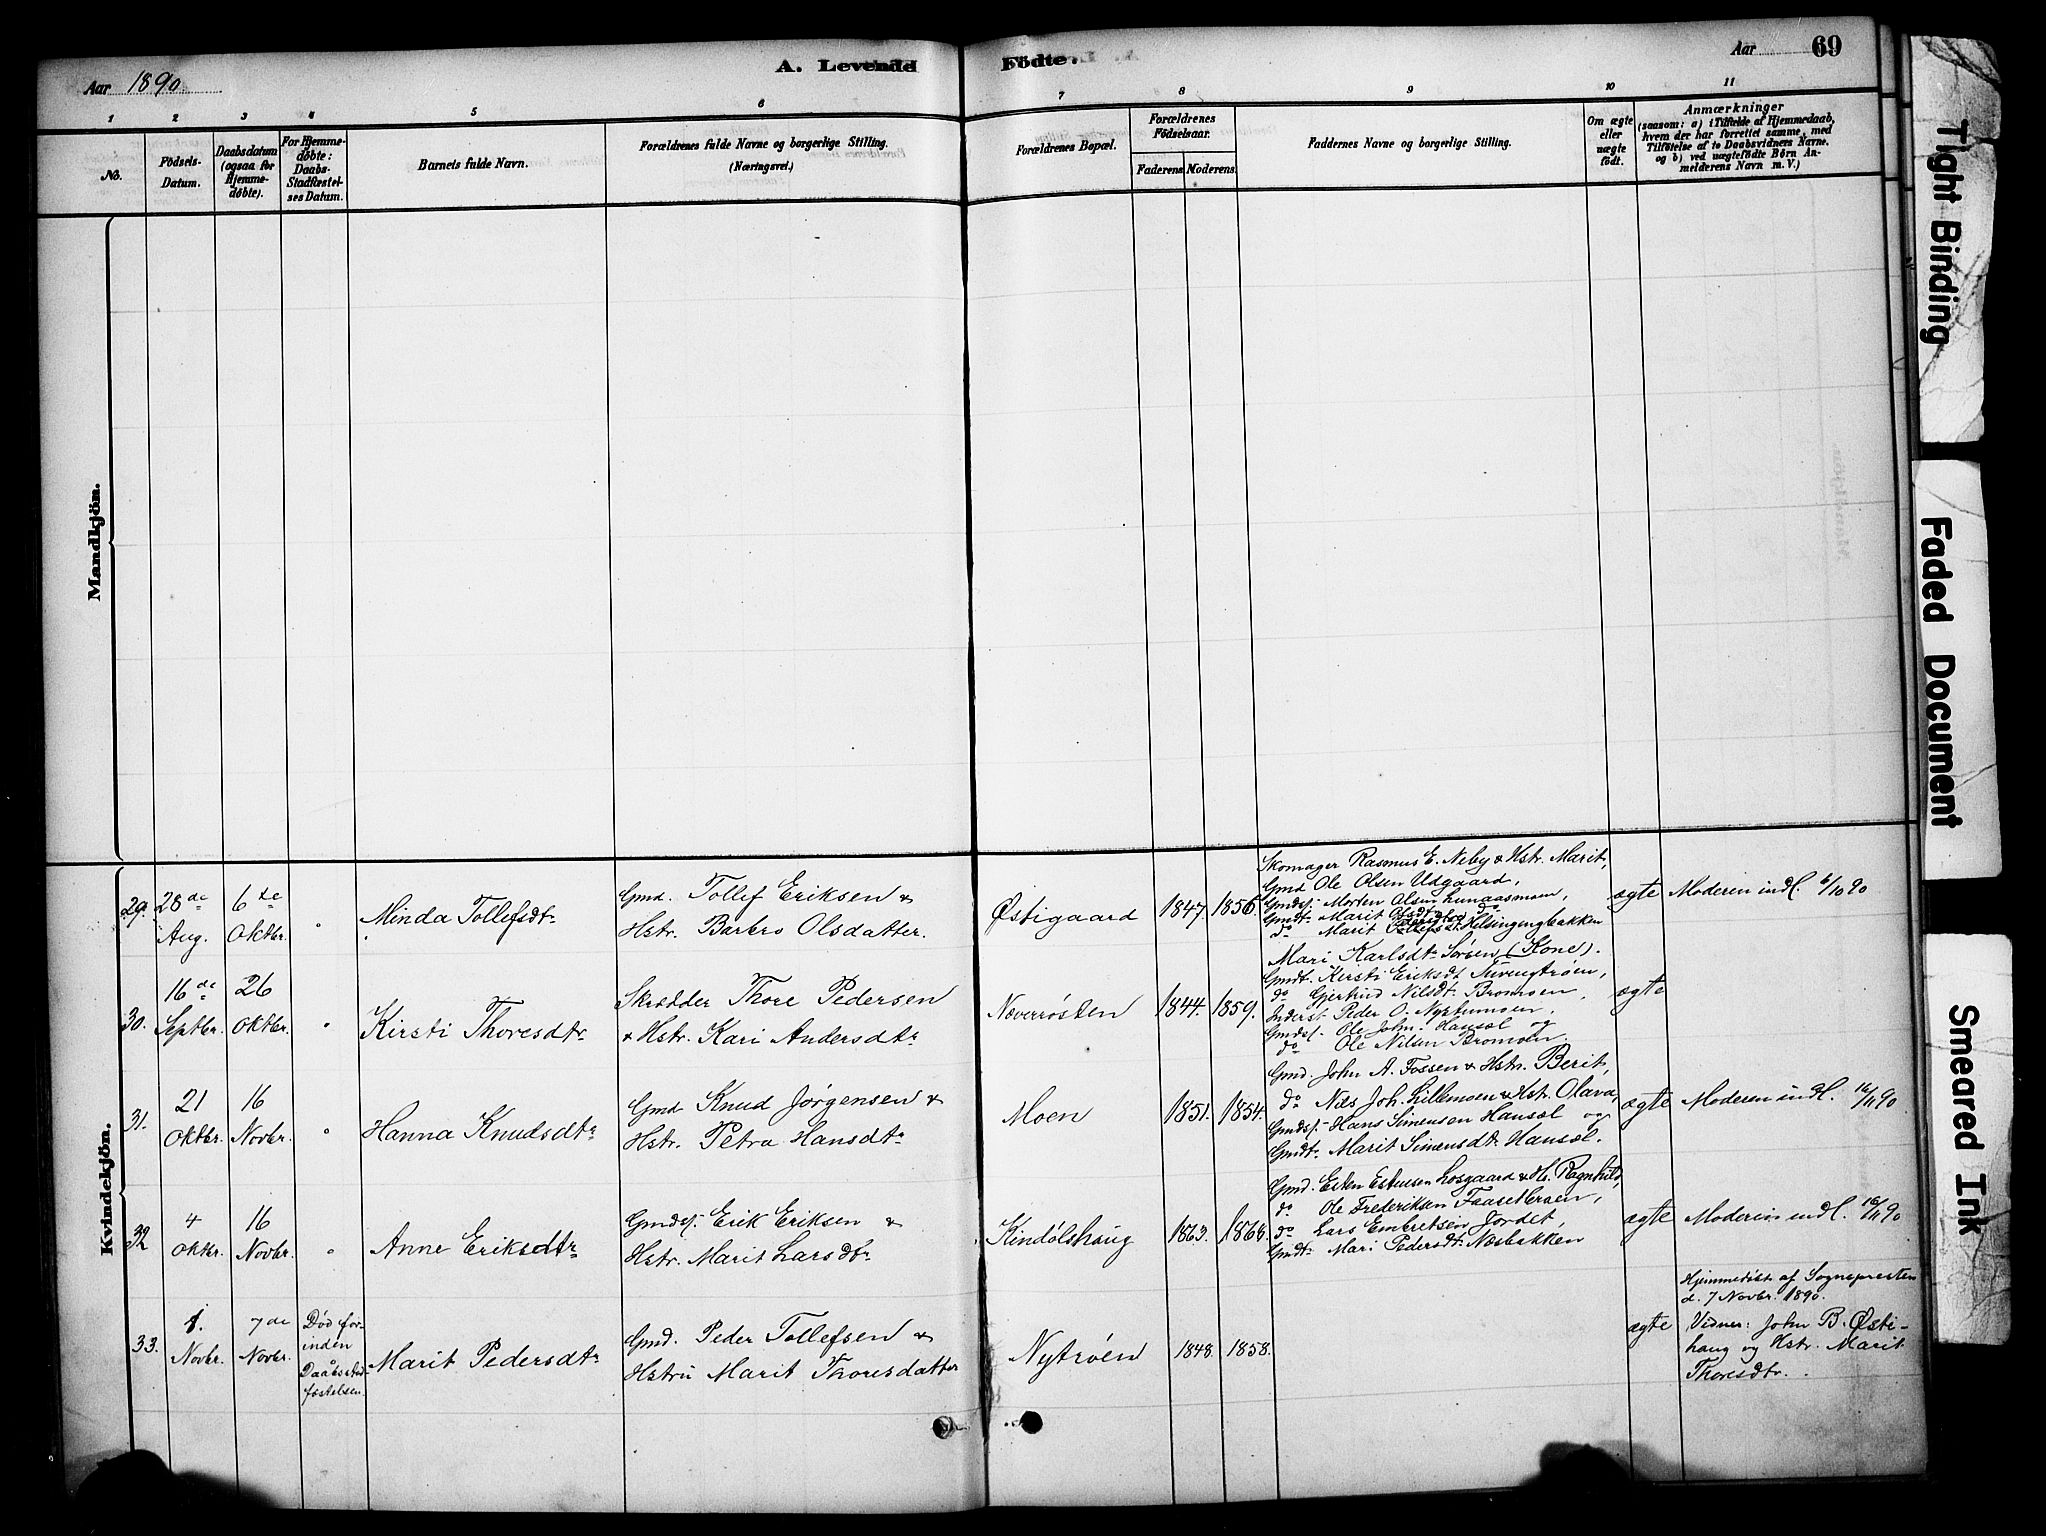 Aar 1890
A. Levende Födte.
Aar
69
1
2
3
4
5
6
7
8
9
10
11
No.
Födsels-
Datum.
Daabsdatum
(ogsaa for
Hjemme-
døbte).
For Hjemme-
døbte:
Daabs-
Stadfæstel-
ses Datum.
Barnets fulde Navn.
Forældrenes fulde Navne og borgerlige Stilling.
(Næringsvei.)
Forældrenes Bopæl.
Forældrenes
Födselsaar.
Faderens
Moderens.
Faddernes Navne og borgerlige Stilling.
Om ægte
eller
uægte
født.
Anmærkninger
(saasom: a) i Tilfælde af Hjemmedaab,
hvem der har forrettet samme, med
Tilføielse af to Daabsvidners Navne,
og b) ved uægtefødte Børn An-
melderens Navn m. V.)
Mandkjön.
Kvindekjön.
29.
28de
Aug.
6te
Oktbr.
"
Minda Tollefsdtr
Gmd. Tollef Eriksen &
Hstr. Barbro Olsdatter.
Østigaard
1847.
1856.
Skomager Rasmus E. Neby & Hstr. Marit,
Gmd Ole Olsen Udgaard,
Gmdsf. Morten Olsen
Gmdt. Marit Olsdtr
do Marit Helsingengbakken
ægte
Moderen indl. 6/10 90
30.
16de
Septbr.
26
Oktbr.
"
Kirsti Thoresdtr
Skrædder Thore Pedersen
& Hstr. Kari Andersdtr
Næverrosten
1844.
1859.
Mari Karlsdtr Sørsen (Kone).
Gmdt. Kirsti Eriksdt Tuvengtrøen,
do Gjertrud Nilsdt. Bromoen,
Inderst Peder O.
Gmdsf. Ole John. Hansæl og
do Ole Nilsen Bromoen.
ægte
31.
21
Oktbr.
16
Novbr.
"
Hanna Knudsdtr
Gmd Knud Jørgensen &
Hstr. Petra Hansdtr
Moen
1851.
1854.
Gmd. John A. Fossen & Hstr. Berit,
do Nils Joh. Lillemoen & Hstr. Olava,
Gmdsf. Hans Simensen Hansæl og
Gmdtr Marit Simensdtr Hansæl.
ægte
Moderen indl. 16/11 90
32
4
Oktbr.
16
Novbr.
"
Anne Eriksdtr
Gmdsf. Erik Eriksen &
Hstr. Marit Larsdtr
Kindølshaug
1863.
1866.
Gmd. Esten Estensen Losgaard & H. Ragnhild,
do Ole Frederiksen Faasetbroen,
do Lars Embretsen Jordet,
Gmdtr Mari Pedersdt. Næsbakken
ægte
Moderen indl. 16/11 90
33.
1.
Novbr.
7de
Novbr.
Død for-
inden
Daabsstad-
fæstelsen.
Marit Pedersdtr
Gmd. Peder Tollefsen &
Hstru Marit Thoresdatter
Nytrøen
1848.
1858.
ægte
Hjemmedøbt af Sognepresten
d. 7 Novbr. 1890.
Vidner: John B. Østi-
haug og Hstr. Marit
Thoresdtr.
Tight Binding
Faded Document
Smeared Ink